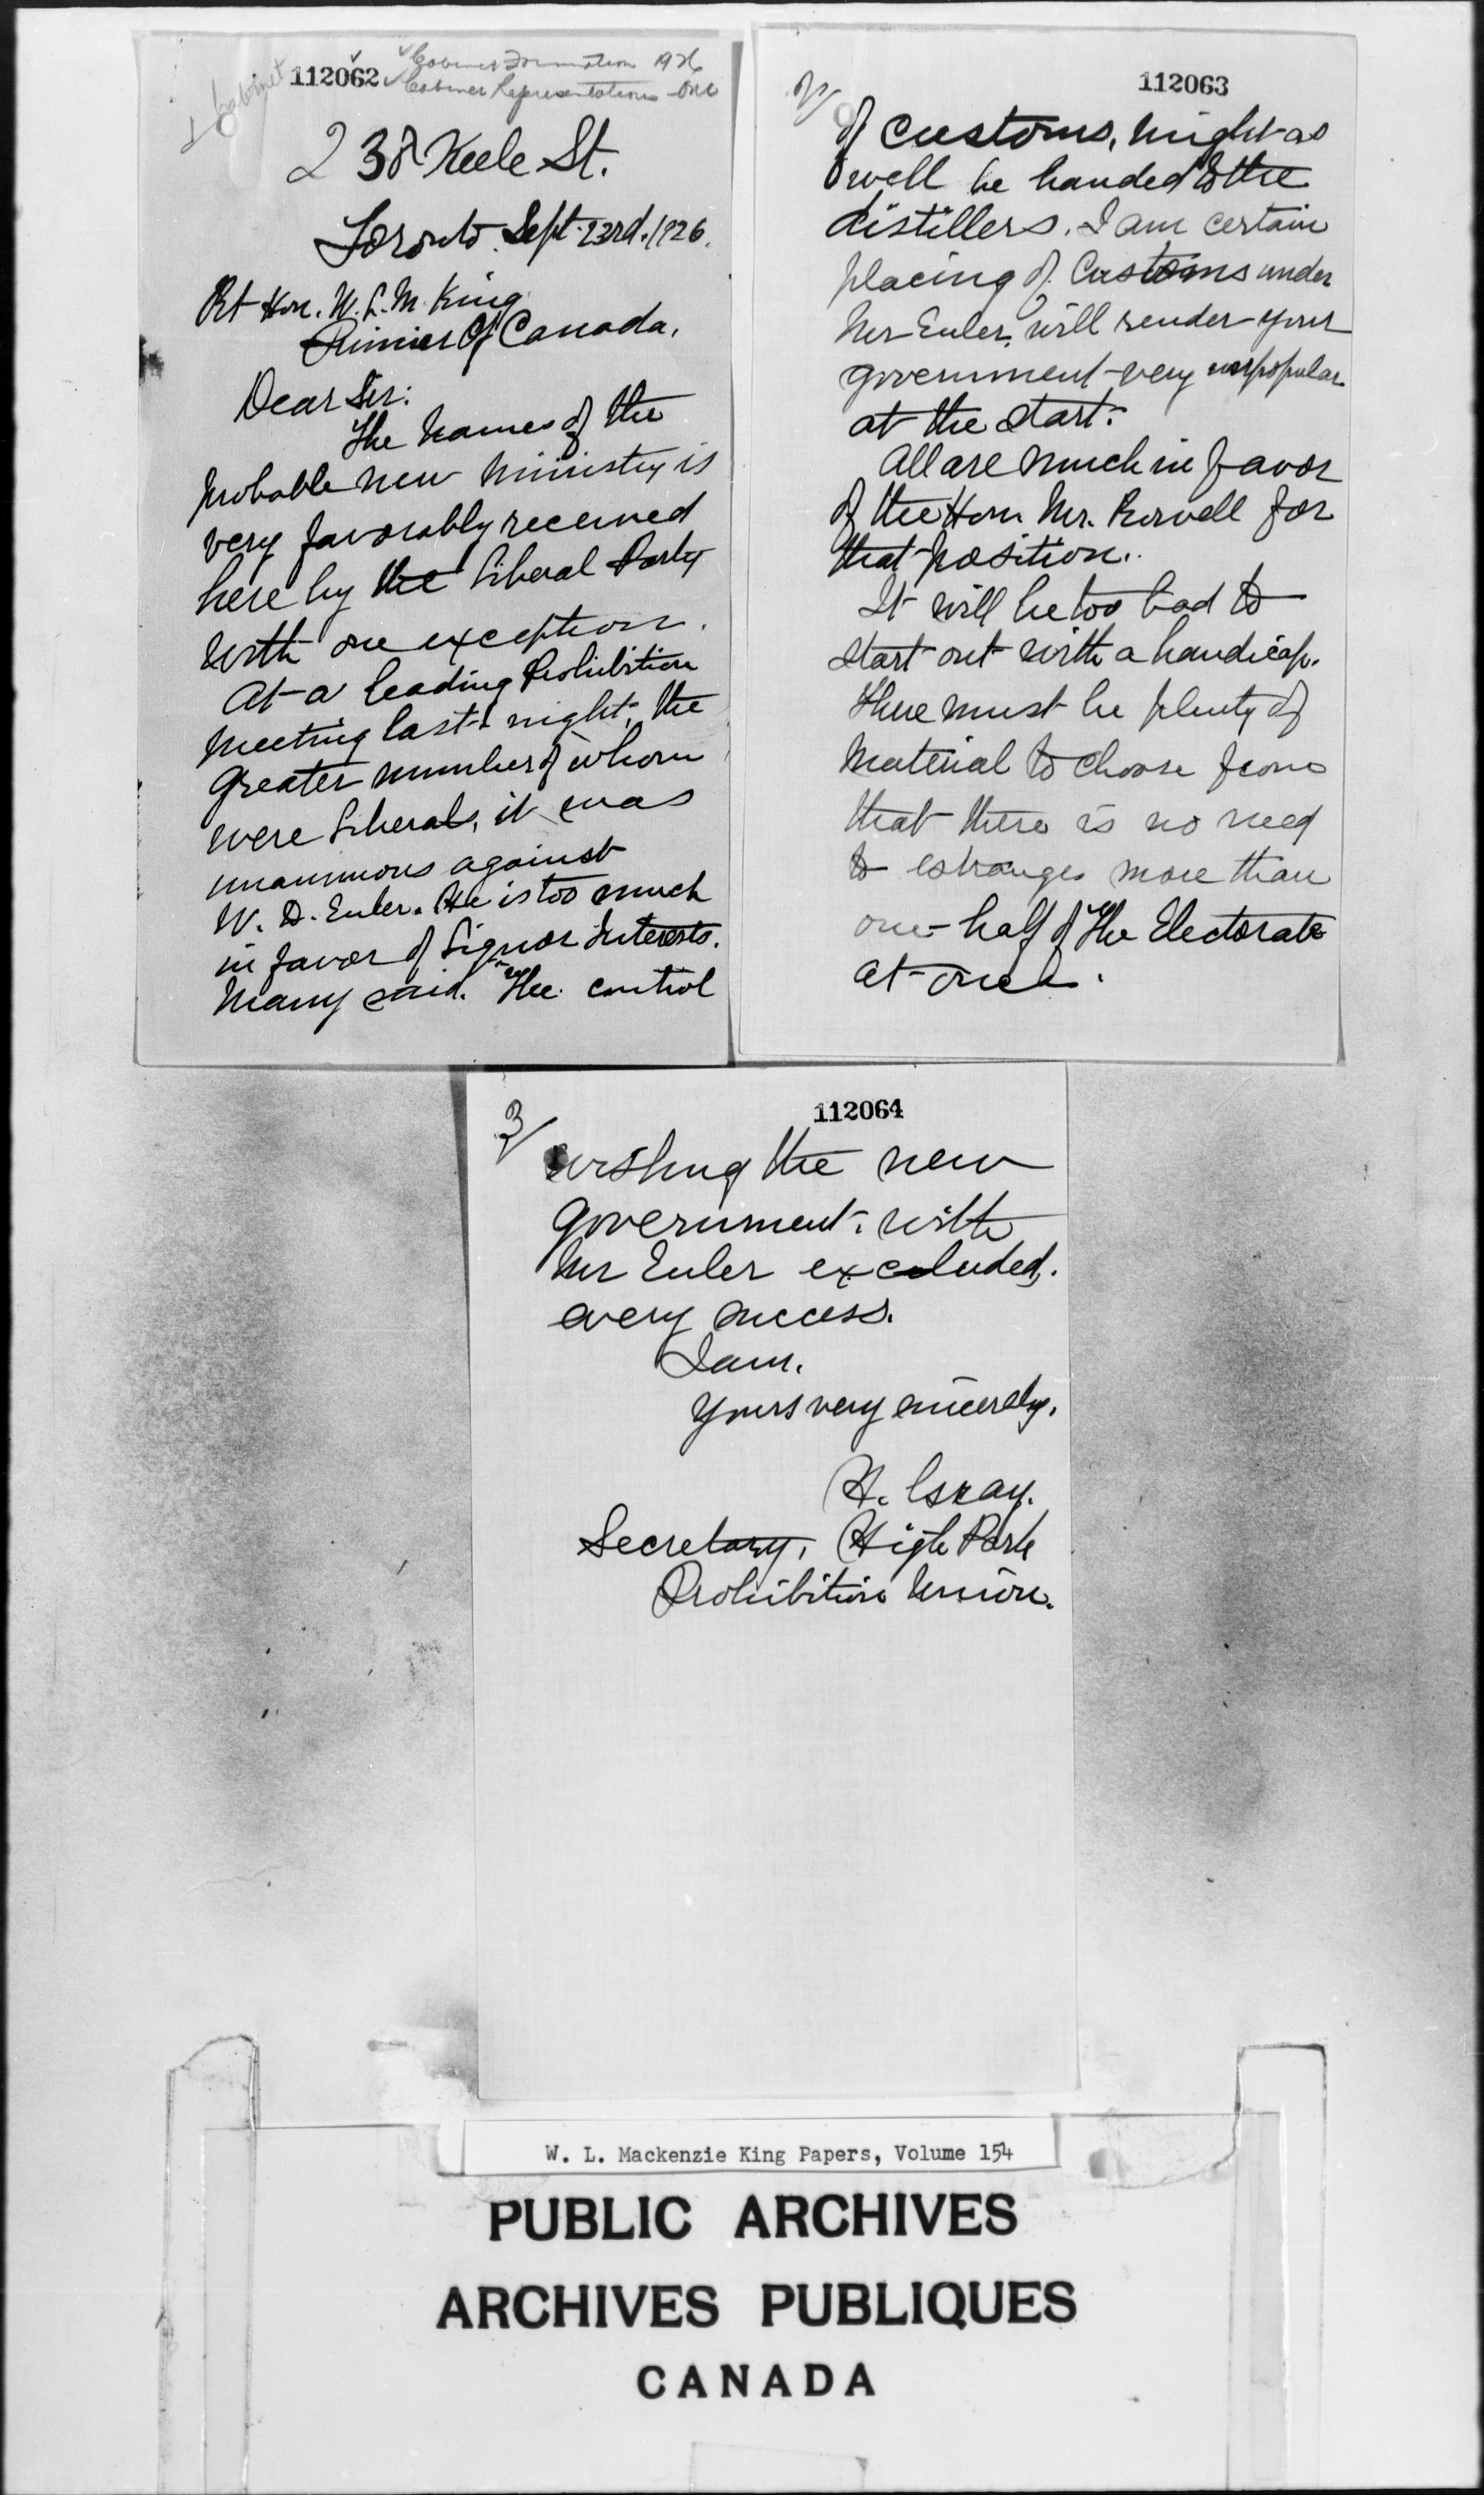 Cabinet
112062
Cabinet Formation 1926
Cabinet Representations - Ont
238 Keele St.
Toronto. Sept. 23rd. 1926.
Rt Hon. W. L. M. King
Primier Of Canada.
Dear Sir:
The names of the
probable new ministry is
very favorably received
here by the Liberal Party
with one exception.
At a leading Prohibition
meeting last night, the
greater number of whom
were Liberals, it was
unanimous against
W. D. Euler. He is too much
in favor of Liquor Interests.
Many said. "The control
2/
112063
of Customs, might as
well be handed to the
distillers. I am certain
placing of Customs under
Mr Euler, will render your
government very unpopular
at the start.
All are much in favor
of the Hon Mr. Rowell for
that position.
It will be too bad to
start out with a handicap.
There must be plenty of
material to choose from
that there is no need
to estrange more than
one-half of "The Electorate
at once.
3/
112064
Wishing the new
government. with
Mr Euler excluded,.
every success.
I am.
Yours very sincerely.
Secretary, High Park
Prohibition Union.
W. L. Mackenzie King Papers, Volume 154
PUBLIC ARCHIVES
ARCHIVES PUBLIQUES
CANADA